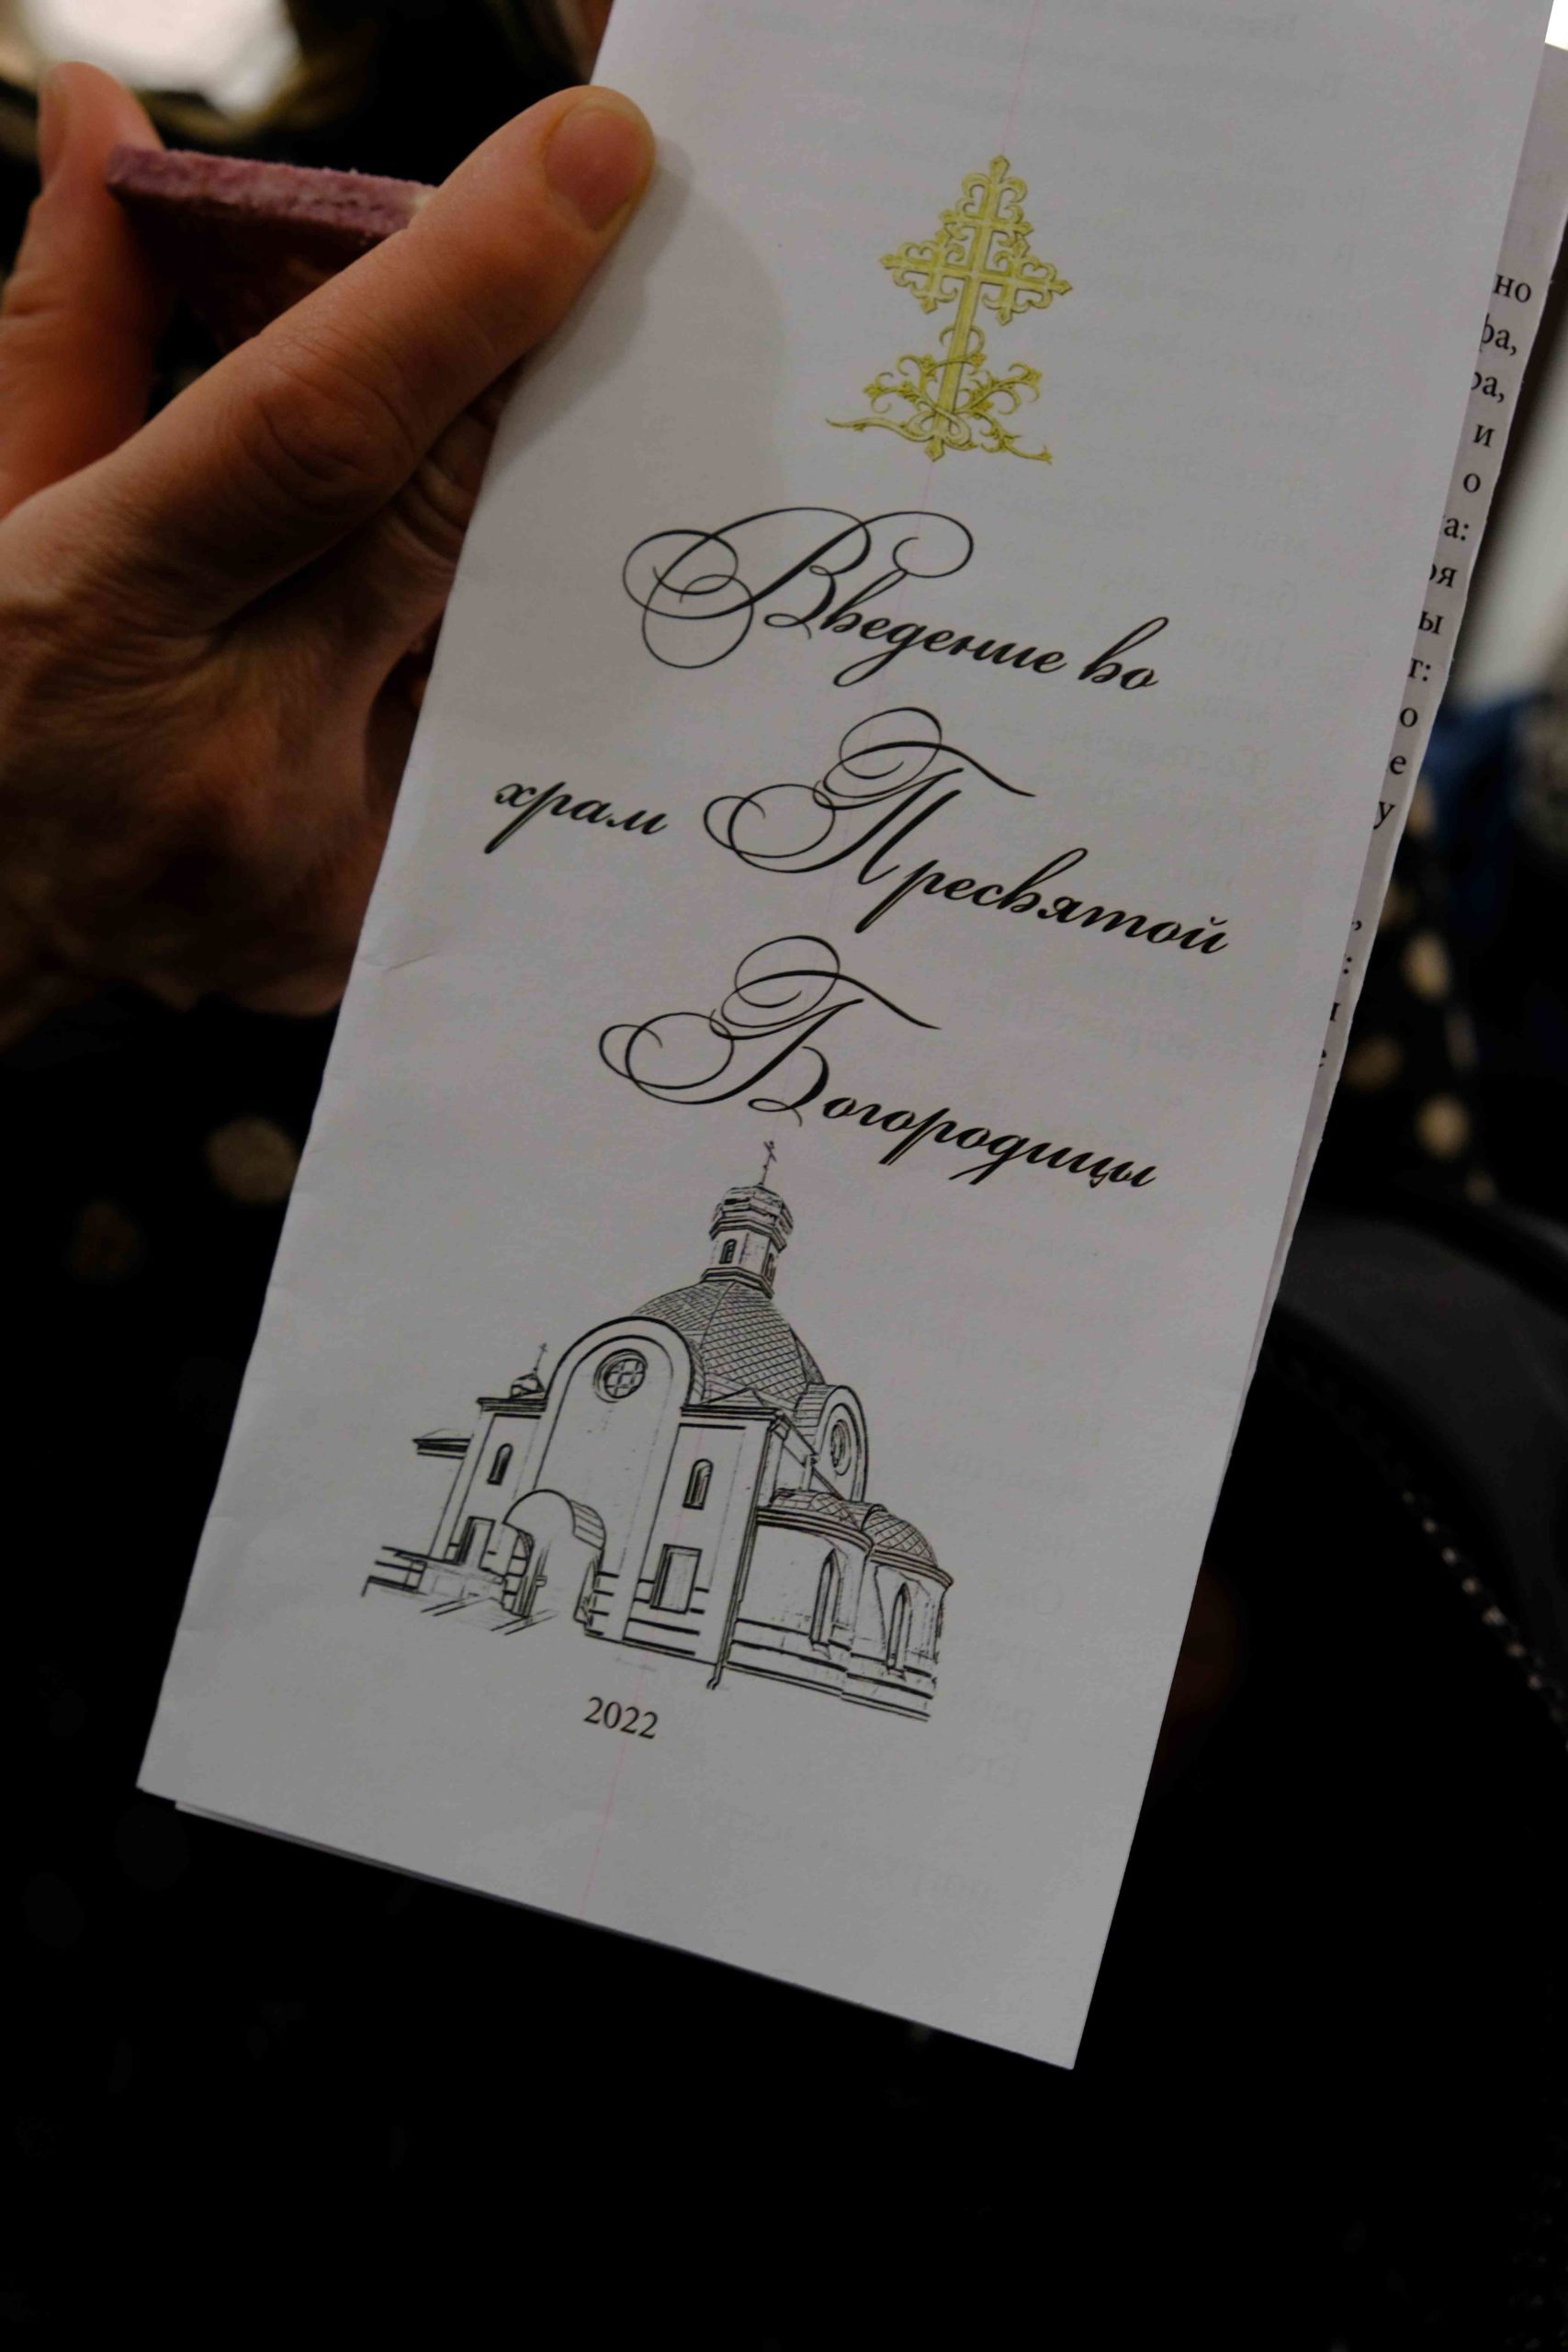 Введение во
храм Пресвятой
Богородицы
2022
но
и
о
ы
о
е
у